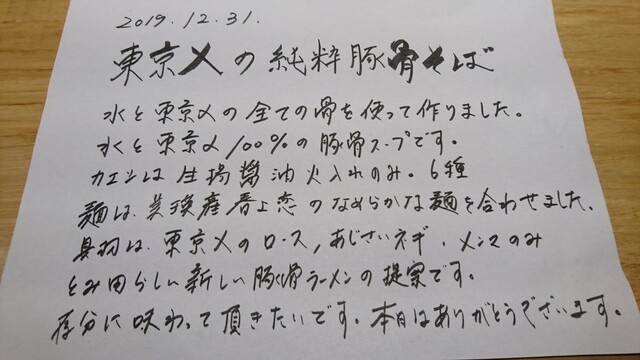 2019.12.31.
東京Xの純粋豚骨そば
水と東京Xの全ての骨を使って作りました。
水と東京X100%の豚骨スープです。
カエシは生揚醤油火入れのみ。6種
麺は、美瑛産春よ恋のなめらかな麺を合わせました。
具材は、東京Xのロース、あじさいネギ、メンマのみ
とみ田らしい新しい豚骨ラーメンの提案です。
存分に味わって頂きたいです。本日はありがとうございます。